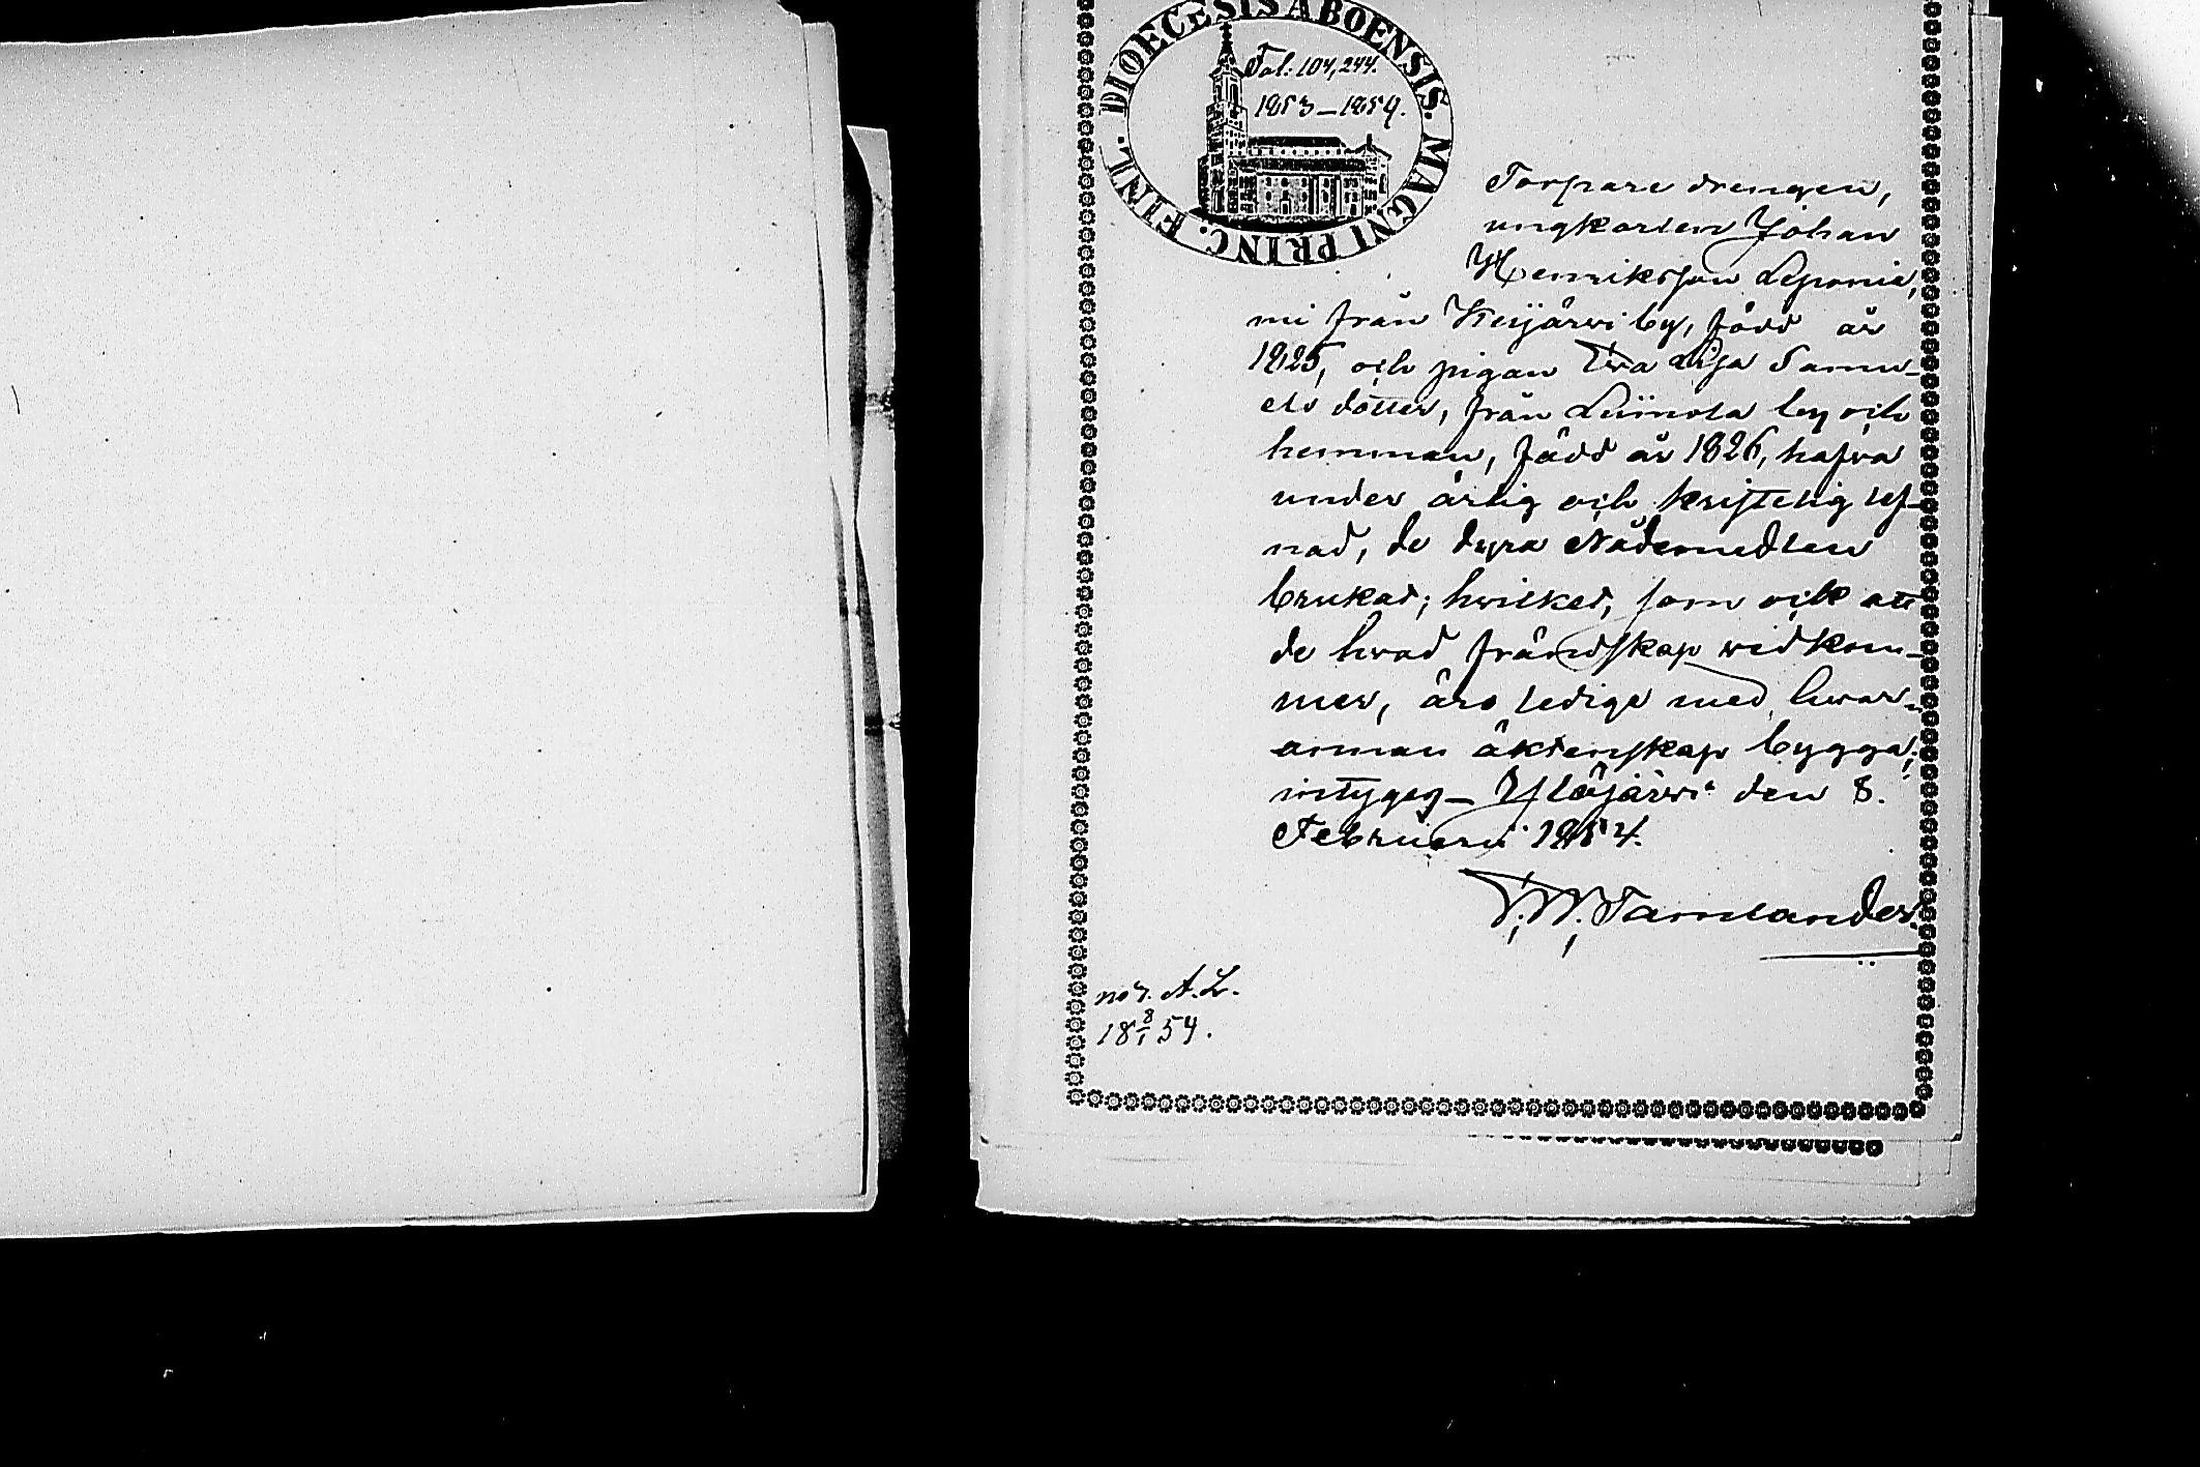 DIOECESIS ABOENSIS. MAGNI PRINC. FINL.
Fol: 104, 244.
1853–1859.
Torpare drengen,
ungkarlen Johan
Henriksson Leponie,
mi från Keijärvi by, född år
1825, och pigan Eva Lisa Samu-
els dotter, från Liinola by och
hemman, född år 1826, hafva
under ärlig och kristelig lef-
nad, de dyra Nådemedlen
brukat; hvilket, som ock att
de hvad frändskap vidkom-
mer, äro ledige med hvar-
annan äktenskap bygga;
intygeg– Ylöjärvi den 8.
Februari 1854.
F. W. Tamlander.
not. A. L.
18 8/1 54.